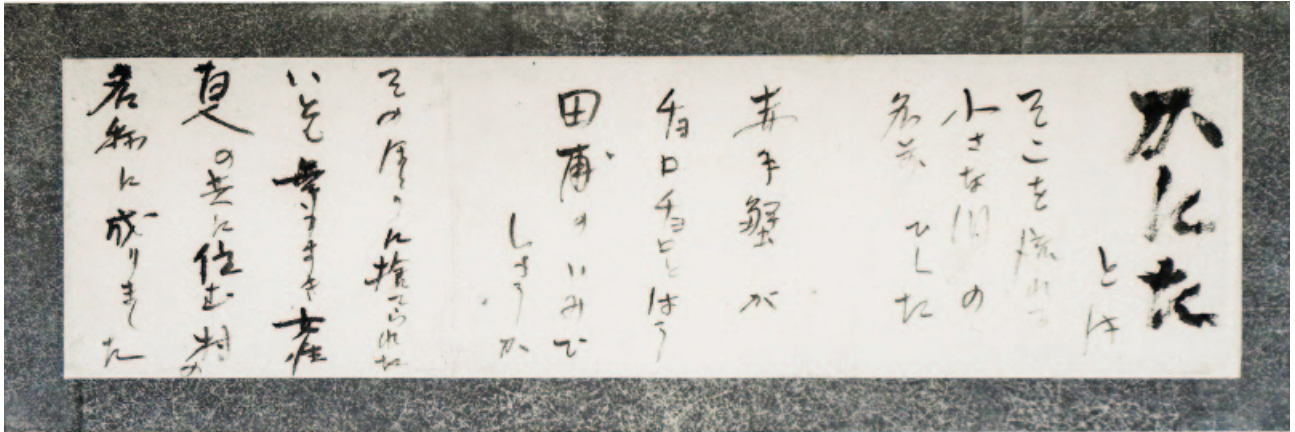 かにた
とは
そこを流れる
小さな川の
名前でした
赤手蟹が
チョロチョロとはう
田甫のいみで
しょうか
その周りに捨てられた
いとも幸うすき女性
負の共に住む村の
名称に成りました